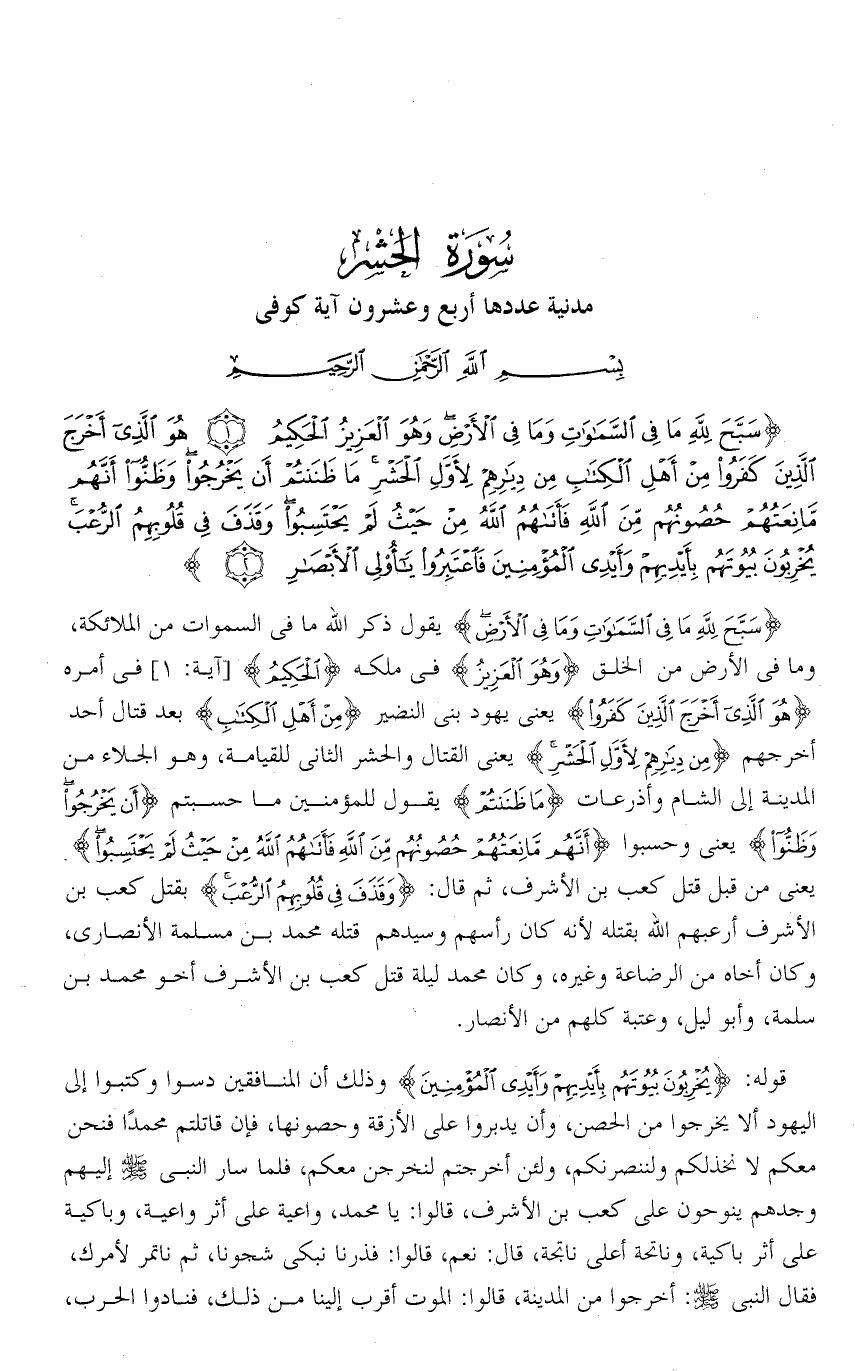 سُورَةُ الحَشْرِ
مدنية عددها أربع وعشرون آية كوفى
بِسْمِ ٱللَّهِ ٱلرَّحْمَٰنِ ٱلرَّحِيمِ
﴿سَبَّحَ لِلَّهِ مَا فِى ٱلسَّمَٰوَٰتِ وَمَا فِى ٱلْأَرْضِۖ وَهُوَ ٱلْعَزِيزُ ٱلْحَكِيمُ ۝١ هُوَ ٱلَّذِىٓ أَخْرَجَ
ٱلَّذِينَ كَفَرُوا۟ مِنْ أَهْلِ ٱلْكِتَٰبِ مِن دِيَٰرِهِمْ لِأَوَّلِ ٱلْحَشْرِۚ مَا ظَنَنتُمْ أَن يَخْرُجُوا۟ۖ وَظَنُّوٓا۟ أَنَّهُم
مَّانِعَتُهُمْ حُصُونُهُم مِّنَ ٱللَّهِ فَأَتَىٰهُمُ ٱللَّهُ مِنْ حَيْثُ لَمْ يَحْتَسِبُوا۟ۖ وَقَذَفَ فِى قُلُوبِهِمُ ٱلرُّعْبَۚ
يُخْرِبُونَ بُيُوتَهُم بِأَيْدِيهِمْ وَأَيْدِى ٱلْمُؤْمِنِينَ فَٱعْتَبِرُوا۟ يَٰٓأُو۟لِى ٱلْأَبْصَٰرِ ۝٢ ﴾
﴿سَبَّحَ لِلَّهِ مَا فِى ٱلسَّمَٰوَٰتِ وَمَا فِى ٱلْأَرْضِۖ﴾ يقول ذكر الله ما فى السموات من الملائكة،
وما فى الأرض من الخلق ﴿وَهُوَ ٱلْعَزِيزُ﴾ فى ملكه ﴿ٱلْحَكِيمُ﴾ [آية: ١] فى أمره
﴿هُوَ ٱلَّذِىٓ أَخْرَجَ ٱلَّذِينَ كَفَرُوا۟﴾ يعنى يهود بنى النضير ﴿مِنْ أَهْلِ ٱلْكِتَٰبِ﴾ بعد قتال أحد
أخرجهم ﴿مِن دِيَٰرِهِمْ لِأَوَّلِ ٱلْحَشْرِۚ﴾ يعنى القتال والحشر الثانى للقيامة، وهو الجلاء من
المدينة إلى الشام وأذرعات ﴿مَا ظَنَنتُمْ﴾ يقول للمؤمنين ما حسبتم ﴿أَن يَخْرُجُوا۟ۖ
وَظَنُّوٓا۟﴾ يعنى وحسبوا ﴿أَنَّهُم مَّانِعَتُهُمْ حُصُونُهُم مِّنَ ٱللَّهِ فَأَتَىٰهُمُ ٱللَّهُ مِنْ حَيْثُ لَمْ يَحْتَسِبُوا۟ۖ﴾.
يعنى من قبل قتل كعب بن الأشرف، ثم قال: ﴿وَقَذَفَ فِى قُلُوبِهِمُ ٱلرُّعْبَۚ﴾ بقتل كعب بن
الأشرف أرعبهم الله بقتله لأنه كان رأسهم وسيدهم قتله محمد بن مسلمة الأنصارى،
وكان أخاه من الرضاعة وغيره، وكان محمد ليلة قتل كعب بن الأشرف أخو محمد بن
سلمة، وأبو ليل، وعتبة كلهم من الأنصار.
قوله: ﴿يُخْرِبُونَ بُيُوتَهُم بِأَيْدِيهِمْ وَأَيْدِى ٱلْمُؤْمِنِينَ﴾ وذلك أن المنافقين دسوا وكتبوا إلى
اليهود ألا يخرجوا من الحصن، وأن يدبروا على الأزقة وحصونها، فإن قاتلتم محمدًا فنحن
معكم لا نخذلكم ولننصرنكم، ولئن أخرجتم لنخرجن معكم، فلما سار النبى ﷺ إليهم
وجدهم ينوحون على كعب بن الأشرف، قالوا: يا محمد، واعية على أثر واعية، وباكية
على أثر باكية، ونائحة أعلى نائحة، قال: نعم، قالوا: فذرنا نبكى شجونا، ثم نأتمر لأمرك،
فقال النبى ﷺ: أخرجوا من المدينة، قالوا: الموت أقرب إلينا من ذلك، فنادوا الحرب،